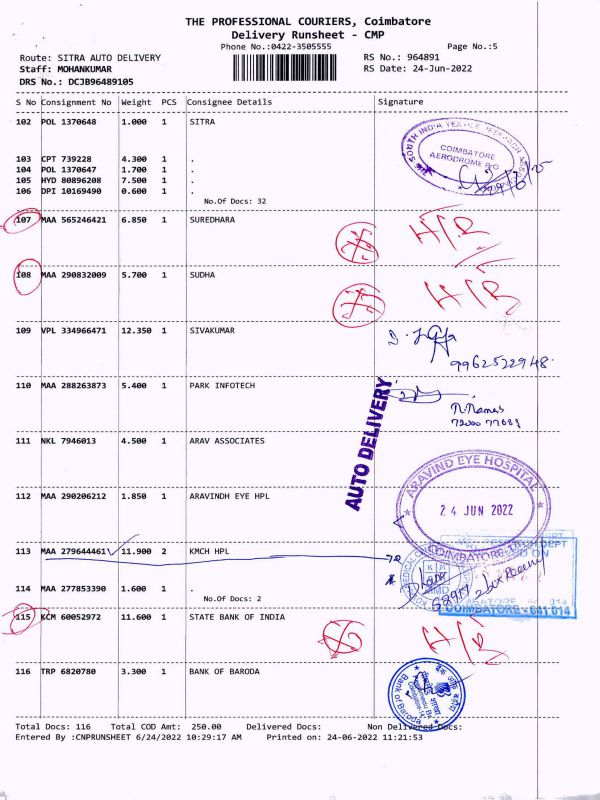 THE PROFESSIONAL COURIERS, Coimbatore
Delivery Runsheet - CMP
Phone No.:0422-3505555
Page No.:5
Route: SITRA AUTO DELIVERY
RS No.: 964891
Staff: MOHANKUMAR
RS Date: 24-Jun-2022
DRS No.: DCJB96489105
S No Consignment No Weight PCS Consignee Details Signature
102 POL 1370648 1.000 1 SITRA
COIMBATORE
AERODROME P.O
103 CPT 739228 4.300 1 .
104 POL 1370647 1.700 1 .
105 HYD 80896208 7.500 1 .
106 DPI 10169490 0.600 1 .
No.Of Docs: 32
107 MAA 565246421 6.850 1 SUREDHARA
H/R
108 MAA 290832009 5.700 1 SUDHA
H/R
109 VPL 334966471 12.350 1 SIVAKUMAR
9962522948
110 MAA 288263873 5.400 1 PARK INFOTECH
AUTO DELIVERY
111 NKL 7946013 4.500 1 ARAV ASSOCIATES
ARAVIND EYE HOSPITAL
24 JUN 2022
COIMBATORE
112 MAA 290206212 1.850 1 ARAVINDH EYE HPL
113 MAA 279644461 11.900 2 KMCH HPL
114 MAA 277853390 1.600 1 .
No.Of Docs: 2
COIMBATORE - 641 014
115 KCM 60052972 11.600 1 STATE BANK OF INDIA
H/R
116 TRP 6820780 3.300 1 BANK OF BARODA
Bank of Baroda
Total Docs: 116 Total COD Amt: 250.00 Delivered Docs: Non Delivered Docs:
Entered By :CNPRUNSHEET 6/24/2022 10:29:17 AM Printed on: 24-06-2022 11:21:53